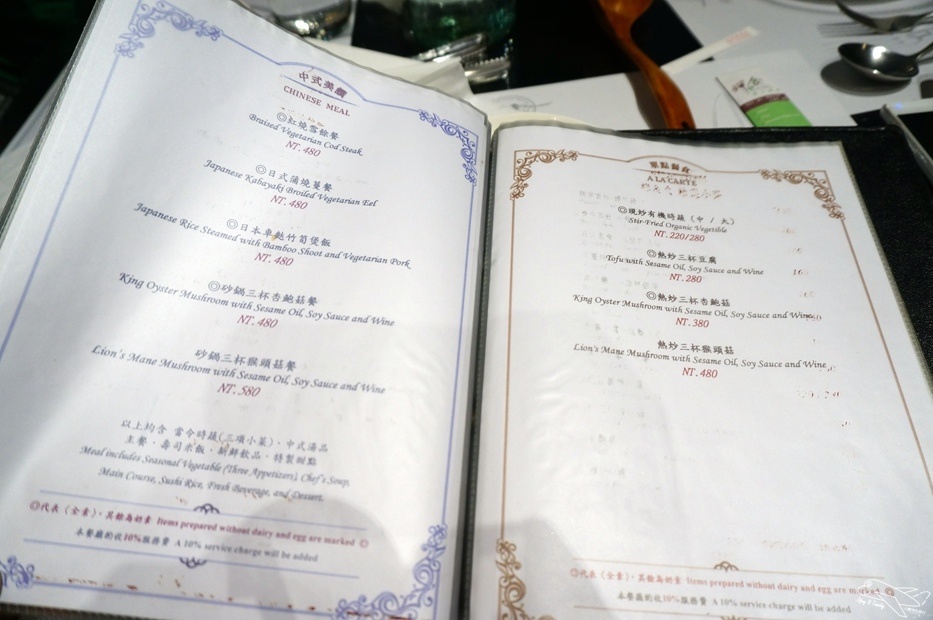 中式美饌
CHINESE MEAL
◎紅燒雪餘餐
Braised Vegetarian Cod Steak
NT. 480
◎日式蒲燒蔓餐
Japanese Kabayaki Broiled Vegetarian Eel
NT. 480
◎日本車麩竹筍煲飯
Japanese Rice Steamed with Bamboo Shoot and Vegetarian Pork
NT. 480
◎砂鍋三杯杏鮑菇餐
King Oyster Mushroom with Sesame Oil, Soy Sauce and Wine
NT. 480
砂鍋三杯猴頭菇餐
Lion's Mane Mushroom with Sesame Oil, Soy Sauce and Wine
NT. 580
以上均含 當令時蔬(三項小菜)、中式湯品
主餐、壽司米飯、新鮮飲品、特製甜點
Meal includes Seasonal Vegetable (Three Appetizers), Chef's Soup,
Main Course, Sushi Rice, Fresh Beverage, and Dessert.
◎代表（全素），其餘為奶素 Items prepared without dairy and egg are marked ◎
本餐廳酌收10%服務費 A 10% service charge will be added
單點
A LA CARTE
◎現炒有機時蔬（中 / 大）
Stir-Fried Organic Vegetible
NT. 220/280
◎熱炒三杯豆腐
Tofu with Sesame Oil, Soy Sauce and Wine
NT. 280
◎熱炒三杯杏鮑菇
King Oyster Mushroom with Sesame Oil, Soy Sauce and Wine
NT. 380
熱炒三杯猴頭菇
Lion's Mane Mushroom with Sesame Oil, Soy Sauce and Wine
NT. 480
◎代表（全素），其餘為奶素 Items prepared without dairy and egg are marked ◎
本餐廳酌收10%服務費 A 10% service charge will be added